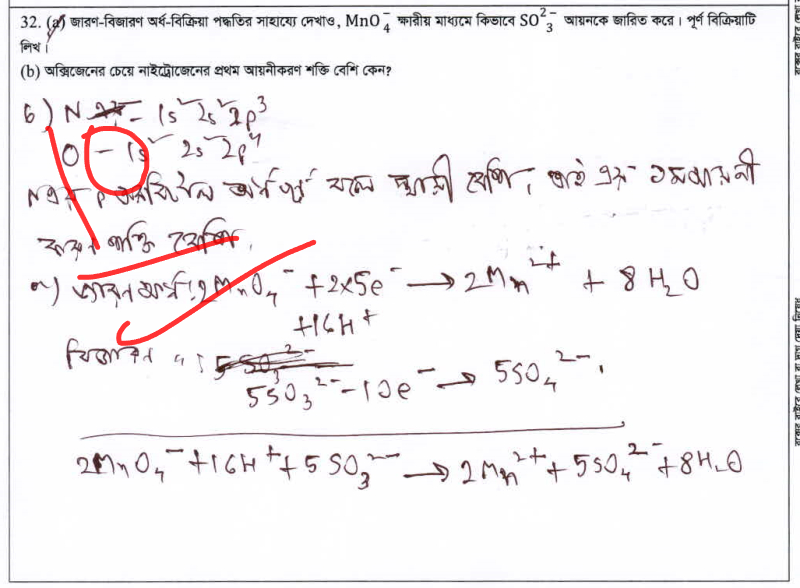 32. (a) জারণ-বিজারণ অর্ধ-বিক্রিয়া পদ্ধতির সাহায্যে দেখাও, MnO₄⁻ ক্ষারীয় মাধ্যমে কিভাবে SO₃²⁻ আয়নকে জারিত করে। পূর্ণ বিক্রিয়াটি
লিখ।
(b) অক্সিজেনের চেয়ে নাইট্রোজেনের প্রথম আয়নীকরণ শক্তি বেশি কেন?
b) N – 1s² 2s² 2p³
O – 1s² 2s² 2p⁴
N এর p অরবিটাল অর্ধপূর্ণ বলে স্থায়ী বেশি, তাই এর ১ম আয়নী
করন শক্তি বেশি।
a) জারন অর্ধ: 2MnO₄⁻ + 2x5e⁻ → 2Mn²⁺ + 8H₂O
+16H⁺
বিজারন " : 5SO₃²⁻
5SO₃²⁻ – 10e⁻ → 5SO₄²⁻,
2MnO₄⁻ + 16H⁺ + 5SO₃²⁻ → 2Mn²⁺ + 5SO₄²⁻ + 8H₂O